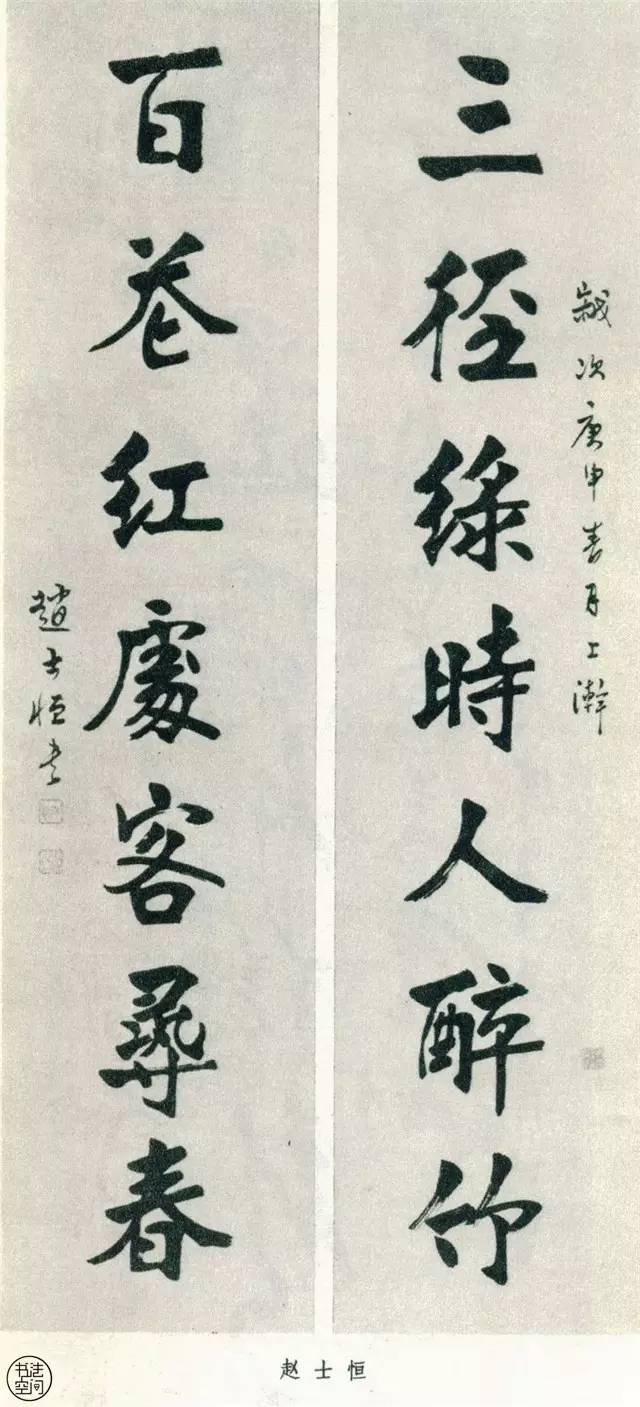 歲次庚申春月上澣
三徑綠時人醉竹
百巷紅處客尋春
趙士恒书
赵士恒
书法
空间